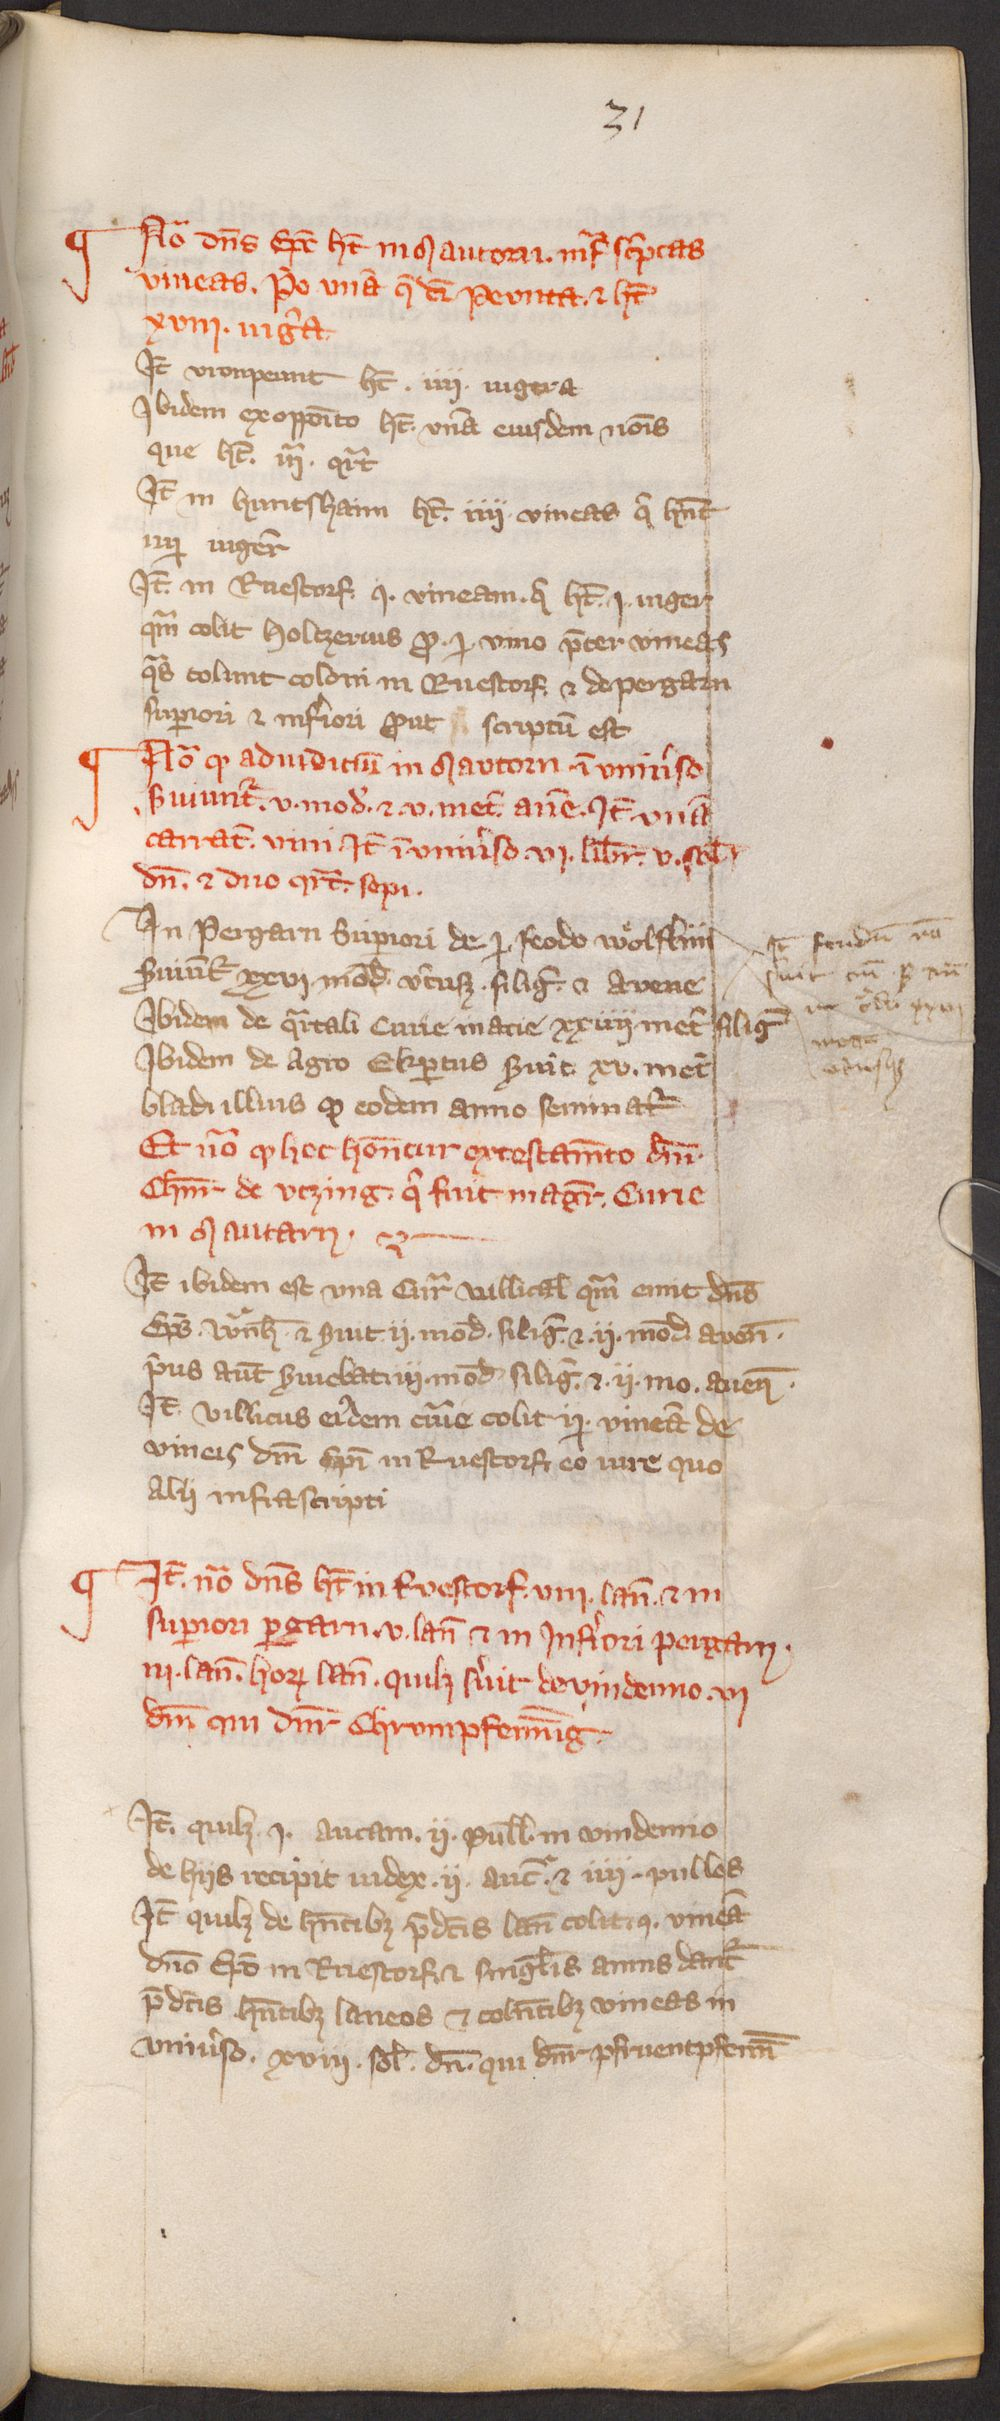 31
Nō dn̄s Epc̄ hт̄ in Mautorn. infr̄ sc̄ptas
vineas. Po vnā q̄ dr̄ Peunta. ⁊ ht̄
xviii. iug̃a
It̄ vronpeunt ht̄. iiii. iugera
Ibidem ex oppōito ht̄. vnā eiusdem nōis
que ht̄. iii. qr̄t
It̄ in huntshaim ht̄. iiii. vineas q̄ hn̄t
iiij iuger̄
It̄. in Ruestorf. j. vineam. q̄ ht̄. j. iuger
qm̄ colit Holtzerius ꝓ. j. vino p̄ter vineas
qᷓs colunt coloni in Ruestorf. ⁊ de pergarn
supiori ⁊ inf̄iori ꝓut scriptū est
Nō ꝙ ad iudiciū in Mautorn ī vniũso
Suiunt̄. v. mod̄. ⁊. v. met̄. auēe. It̄. vnā
carrat̄. vini. It̄ ī vniũso. vi. libr̄. v. sol̄
dn̄. ⁊ duo qr̄t. sepi.
In Pergarn Supiori de j feodo wölflini
Suiūt xxvi mod̄ vt̄usqꝫ. silig̃. ⁊ avene
Ibidem de qr̄tali Curie macie xxiiii met̄ silig̃
Ibidem de Agro Ekp̄tus Suit̄ xv. met̄
bladi illius ꝙ eodem anno seminat̄
Et nō ꝙ hec hon̄tur ex testam̄to dn̄i.
Chnr̄ de vtzing. q̄ fuit magr̄. Curie
in Mautarn.
It̄ ibidem est vna Cur̄ villical̄ qm̄ emit dn̄s
Ep̄s. wernh̄. ⁊ Suit ii. mod̄. silig̃. ⁊. ii. mod̄ aven̄.
p̄us aut̄ Suiebat. iii. mod̄ silig̃. ⁊. ii. mo. auen̄.
It̄. villicus eiᷤdem cur̄ie colit ij. vineā de
vineis dn̄i Ep̄i in Ruestorf. eo iure quo
alij infrascripti
It̄. nō dn̄s ht̄ in Ruestorf. viii. lan̄. ⁊ in
supiori pgarn. v. lan̄ ⁊ in Inf̄iori pergarn.
iii. lan̄. horꝝ lan̄. quilꝫ s̄uit de vindemio. vi
dn̄. qui dn̄r Chrompfenning.
It̄. quilꝫ. j. aucam. ii. pull̄. in vindemio
de hijs recipit iudex. ii. auc̄. ⁊ iiii. pulles
It̄ quilꝫ de hn̄tibꝫ p̄dc̄is lan̄ colit. j. vineā
dn̄o Ep̄o in Ruestorf. ⁊ singl̄is annis dant̄
p̄dc̄is hn̄tibꝫ laneos ⁊ coln̄tibꝫ vineas in
vniũso. xviii. sol̄. dn̄. qui dn̄r pfruentpfenn̄